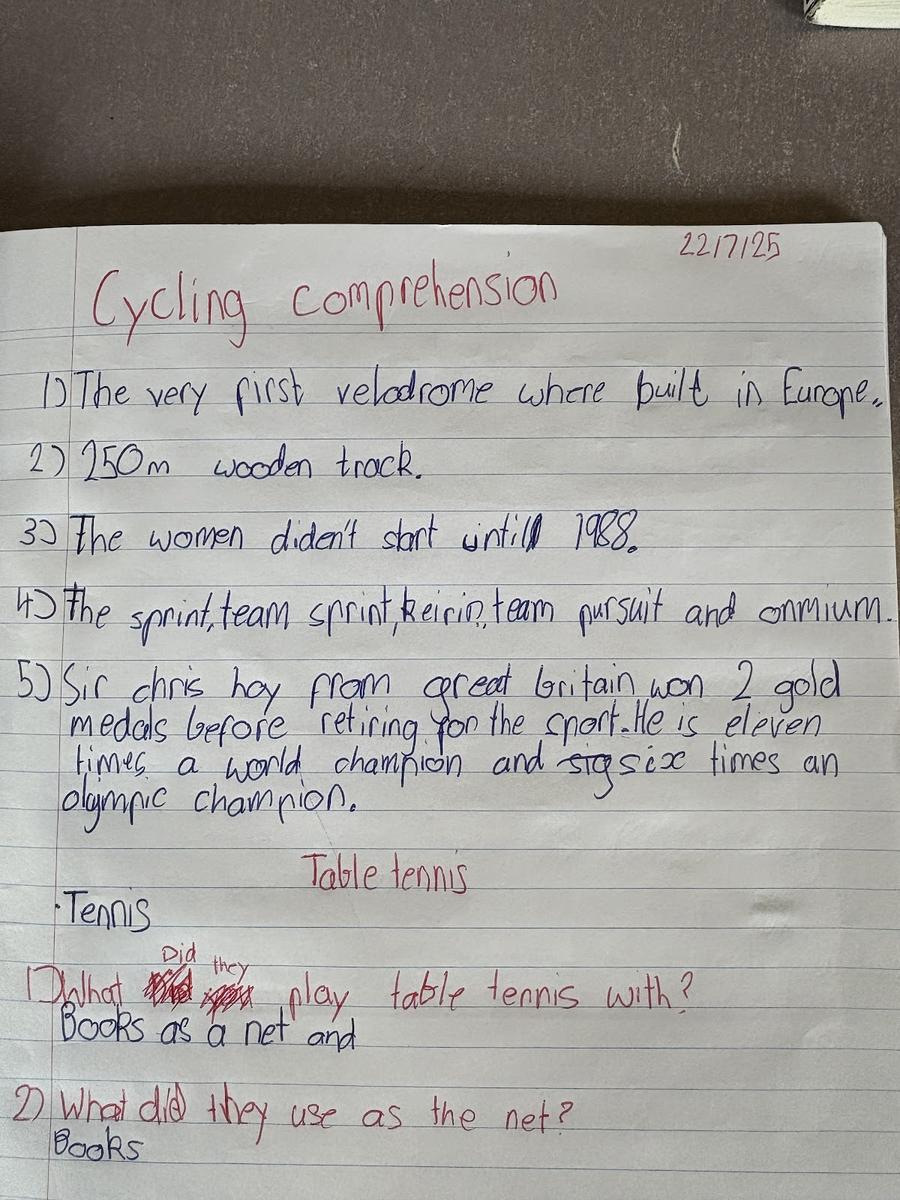 22/7/25
Cycling comprehension
1) The very first velodrome where built in Europe.
2) 250m wooden track.
3) The women diden't start untill 1988.
4) The sprint, team sprint, keirin, team pursuit and onmium.
5) Sir chris hoy from great britain won 2 gold
medals before retiring for the sport. He is eleven
times a world champion and six times an
olympic champion.
Table tennis
·Tennis
Did they
1) What play table tennis with?
Books as a net and
2) What did they use as the net?
Books